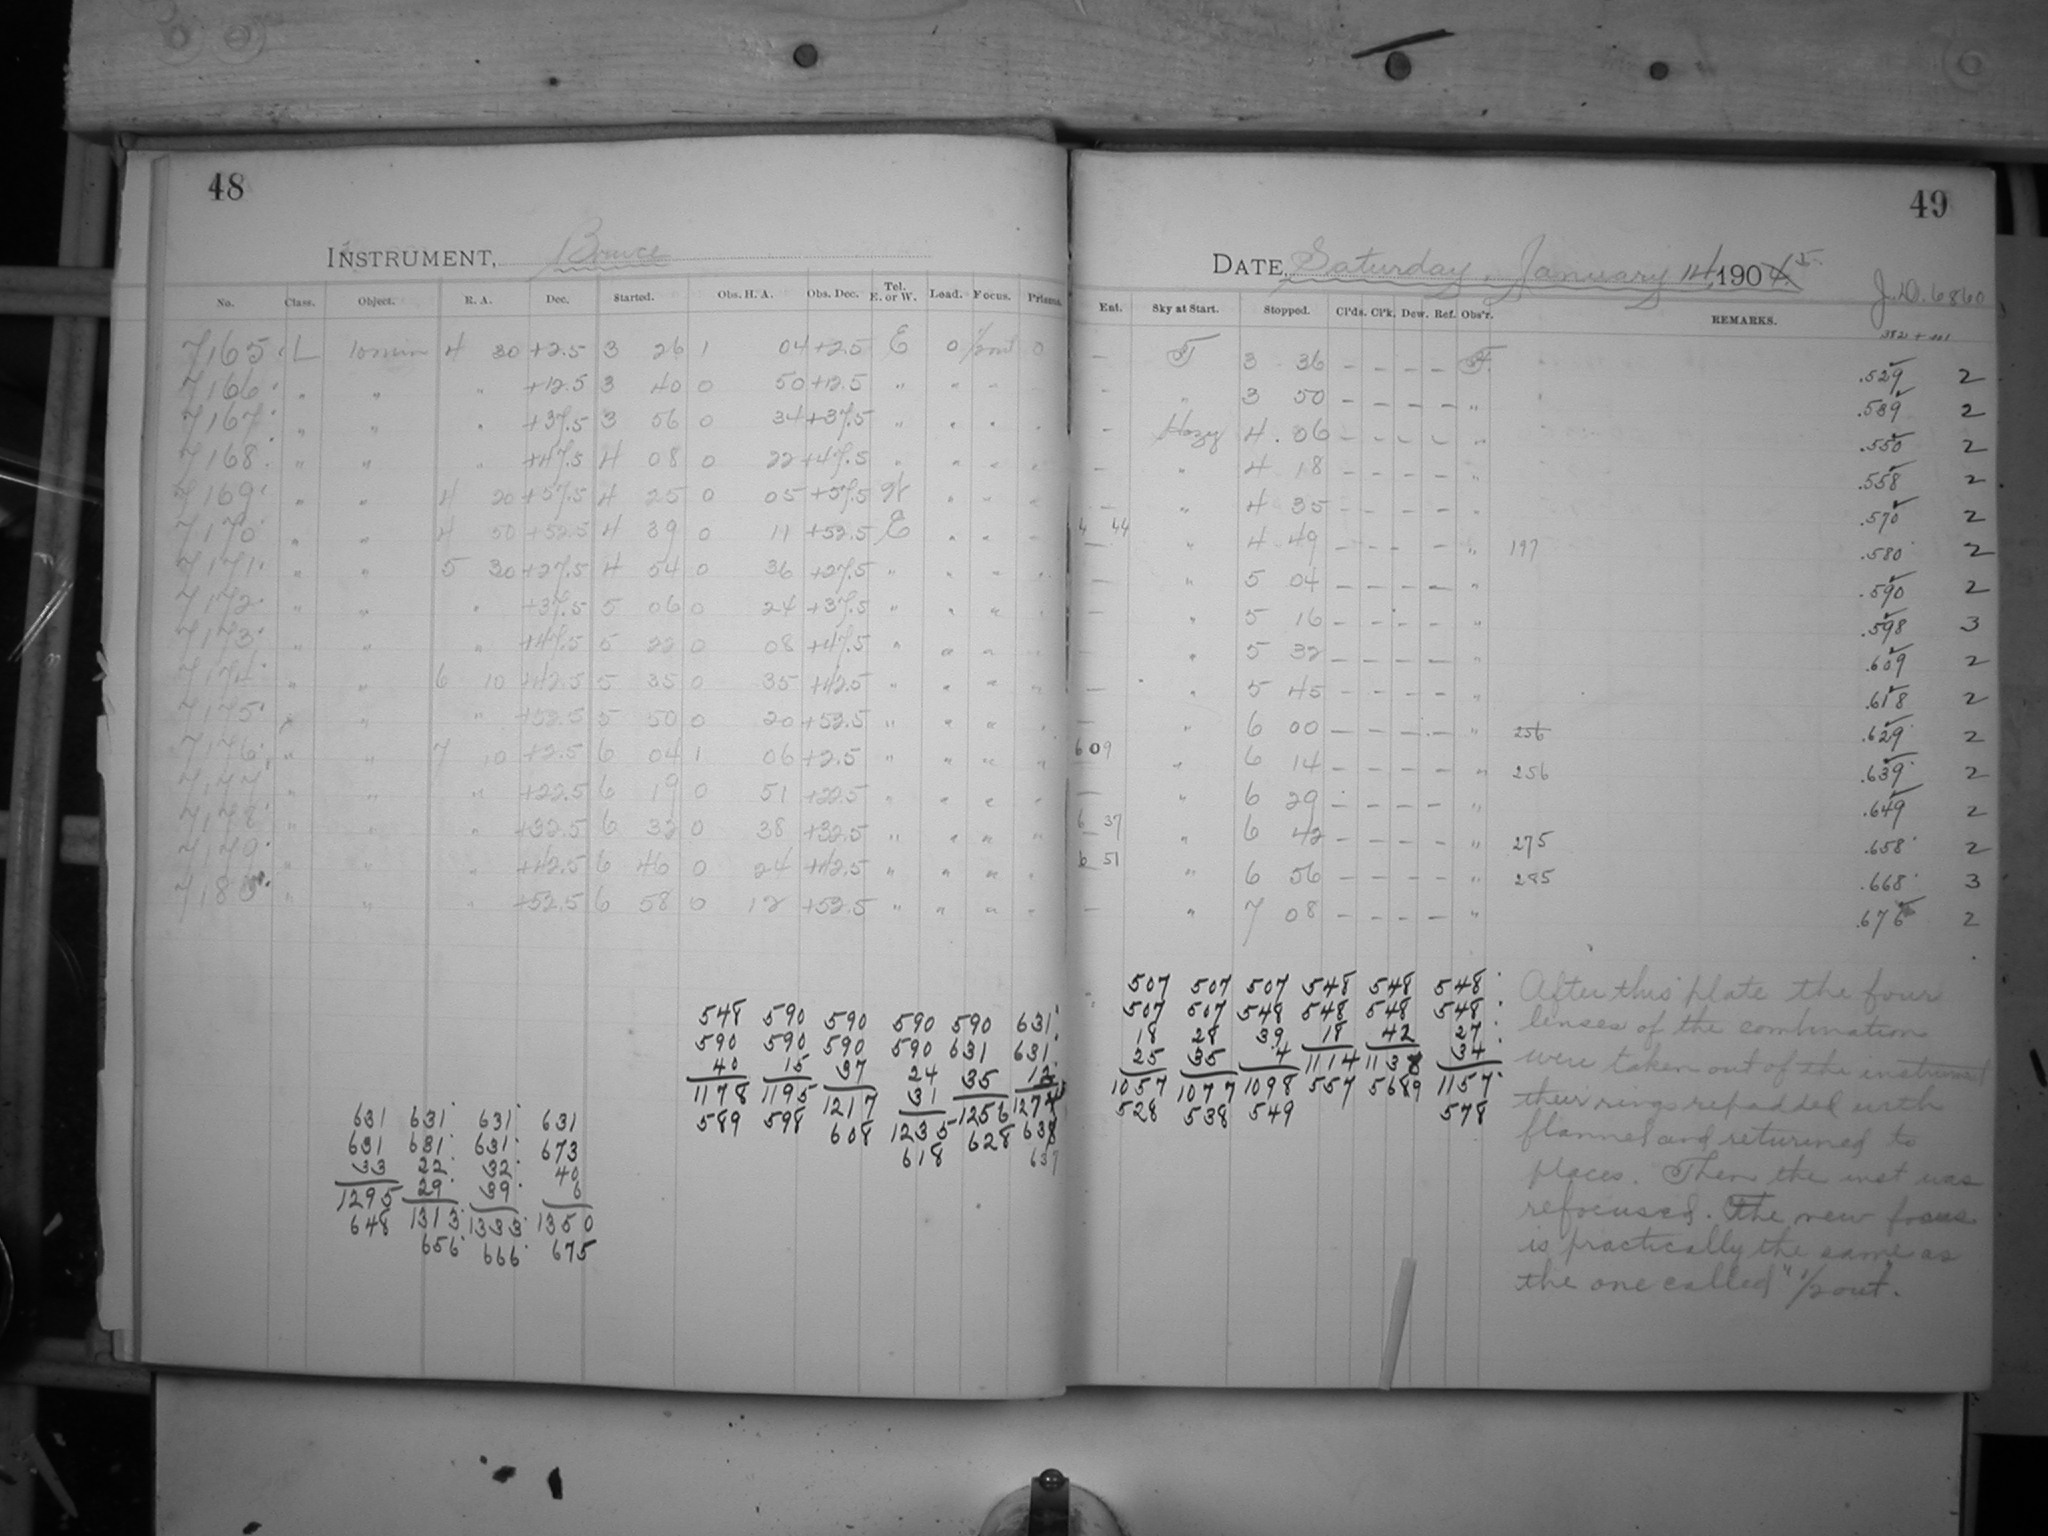 48
INSTRUMENT, Bruce
No. Class. Object. R. A. Dec. Started. Obs. H. A. Obs. Dec. Tel. E. or W. Load. Focus. Prisms.
7165 L 10 min 4 30 +2.5 3 26 1 04 +2.5 E 0 1/2 out 0
7166 " " " +12.5 3 40 0 50 +12.5 " " " "
7167 " " " +37.5 3 56 0 34 +37.5 " " " "
7168 " " " +47.5 4 08 0 22 +47.5 " " " "
7169 " " 4 20 +57.5 4 25 0 05 +57.5 W " " "
7170 " " 4 50 +52.5 4 39 0 11 +52.5 E " " "
7171 " " 5 30 +27.5 4 54 0 36 +27.5 " " " "
7172 " " " +37.5 5 06 0 24 +37.5 " " " "
7173 " " " +47.5 5 22 0 08 +47.5 " " " "
7174 " " 6 10 +42.5 5 35 0 35 +42.5 " " " "
7175 " " " +52.5 5 50 0 20 +52.5 " " " "
7176 " " 7 10 +2.5 6 04 1 06 +2.5 " " " "
7177 " " " +22.5 6 19 0 51 +22.5 " " " "
7178 " " " +32.5 6 32 0 38 +32.5 " " " "
7179 " " " +42.5 6 46 0 24 +42.5 " " " "
7180 " " " +52.5 6 58 0 12 +52.5 " " " "
548 590 590 590 590 631
590 590 590 590 631 631
40 15 37 24 35 12
1178 1195 1217 31 1256 1274
589 598 608 1235 628 638
618 637
631 631 631 631
631 631 631 673
33 22 32 40
1295 29 39 6
648 1313 1333 1350
656 666 675
49
DATE, Saturday, January 14, 1904 5
J.D. 6860
Ent. Sky at Start. Stopped. Cl'ds. Cl'k. Dew. Ref. Obs'r. REMARKS.
— F 3 36 — — — — F. .529 2
— " 3 50 — — — — " .589 2
— Hazy 4 06 — — — — " .550 2
— " 4 18 — — — — " .558 2
— " 4 35 — — — — " .570 2
4 44 " 4 49 — — — — " 197 .580 2
— " 5 04 — — — — " .590 2
— " 5 16 — — — — " .598 3
— " 5 32 — — — — " .609 2
— " 5 45 — — — — " .618 2
— " 6 00 — — — — " 256 .629 2
6 09 " 6 14 — — — — " 256 .639 2
— " 6 29 — — — — " .649 2
6 37 " 6 42 — — — — " 275 .658 2
6 51 " 6 56 — — — — " 285 .668 3
— " 7 08 — — — — " .676 2
507 507 507 548 548 548
507 507 548 548 548 548
18 28 39 18 42 27
25 35 4 1114 1138 34
1057 1077 1098 557 5689 1157
528 538 549 578
After this plate the four
lenses of the combination
were taken out of the instrument
their rings repadded with
flannel and returned to
places. Then the inst was
refocused. The new focus
is practically the same as
the one called "1/2 out".